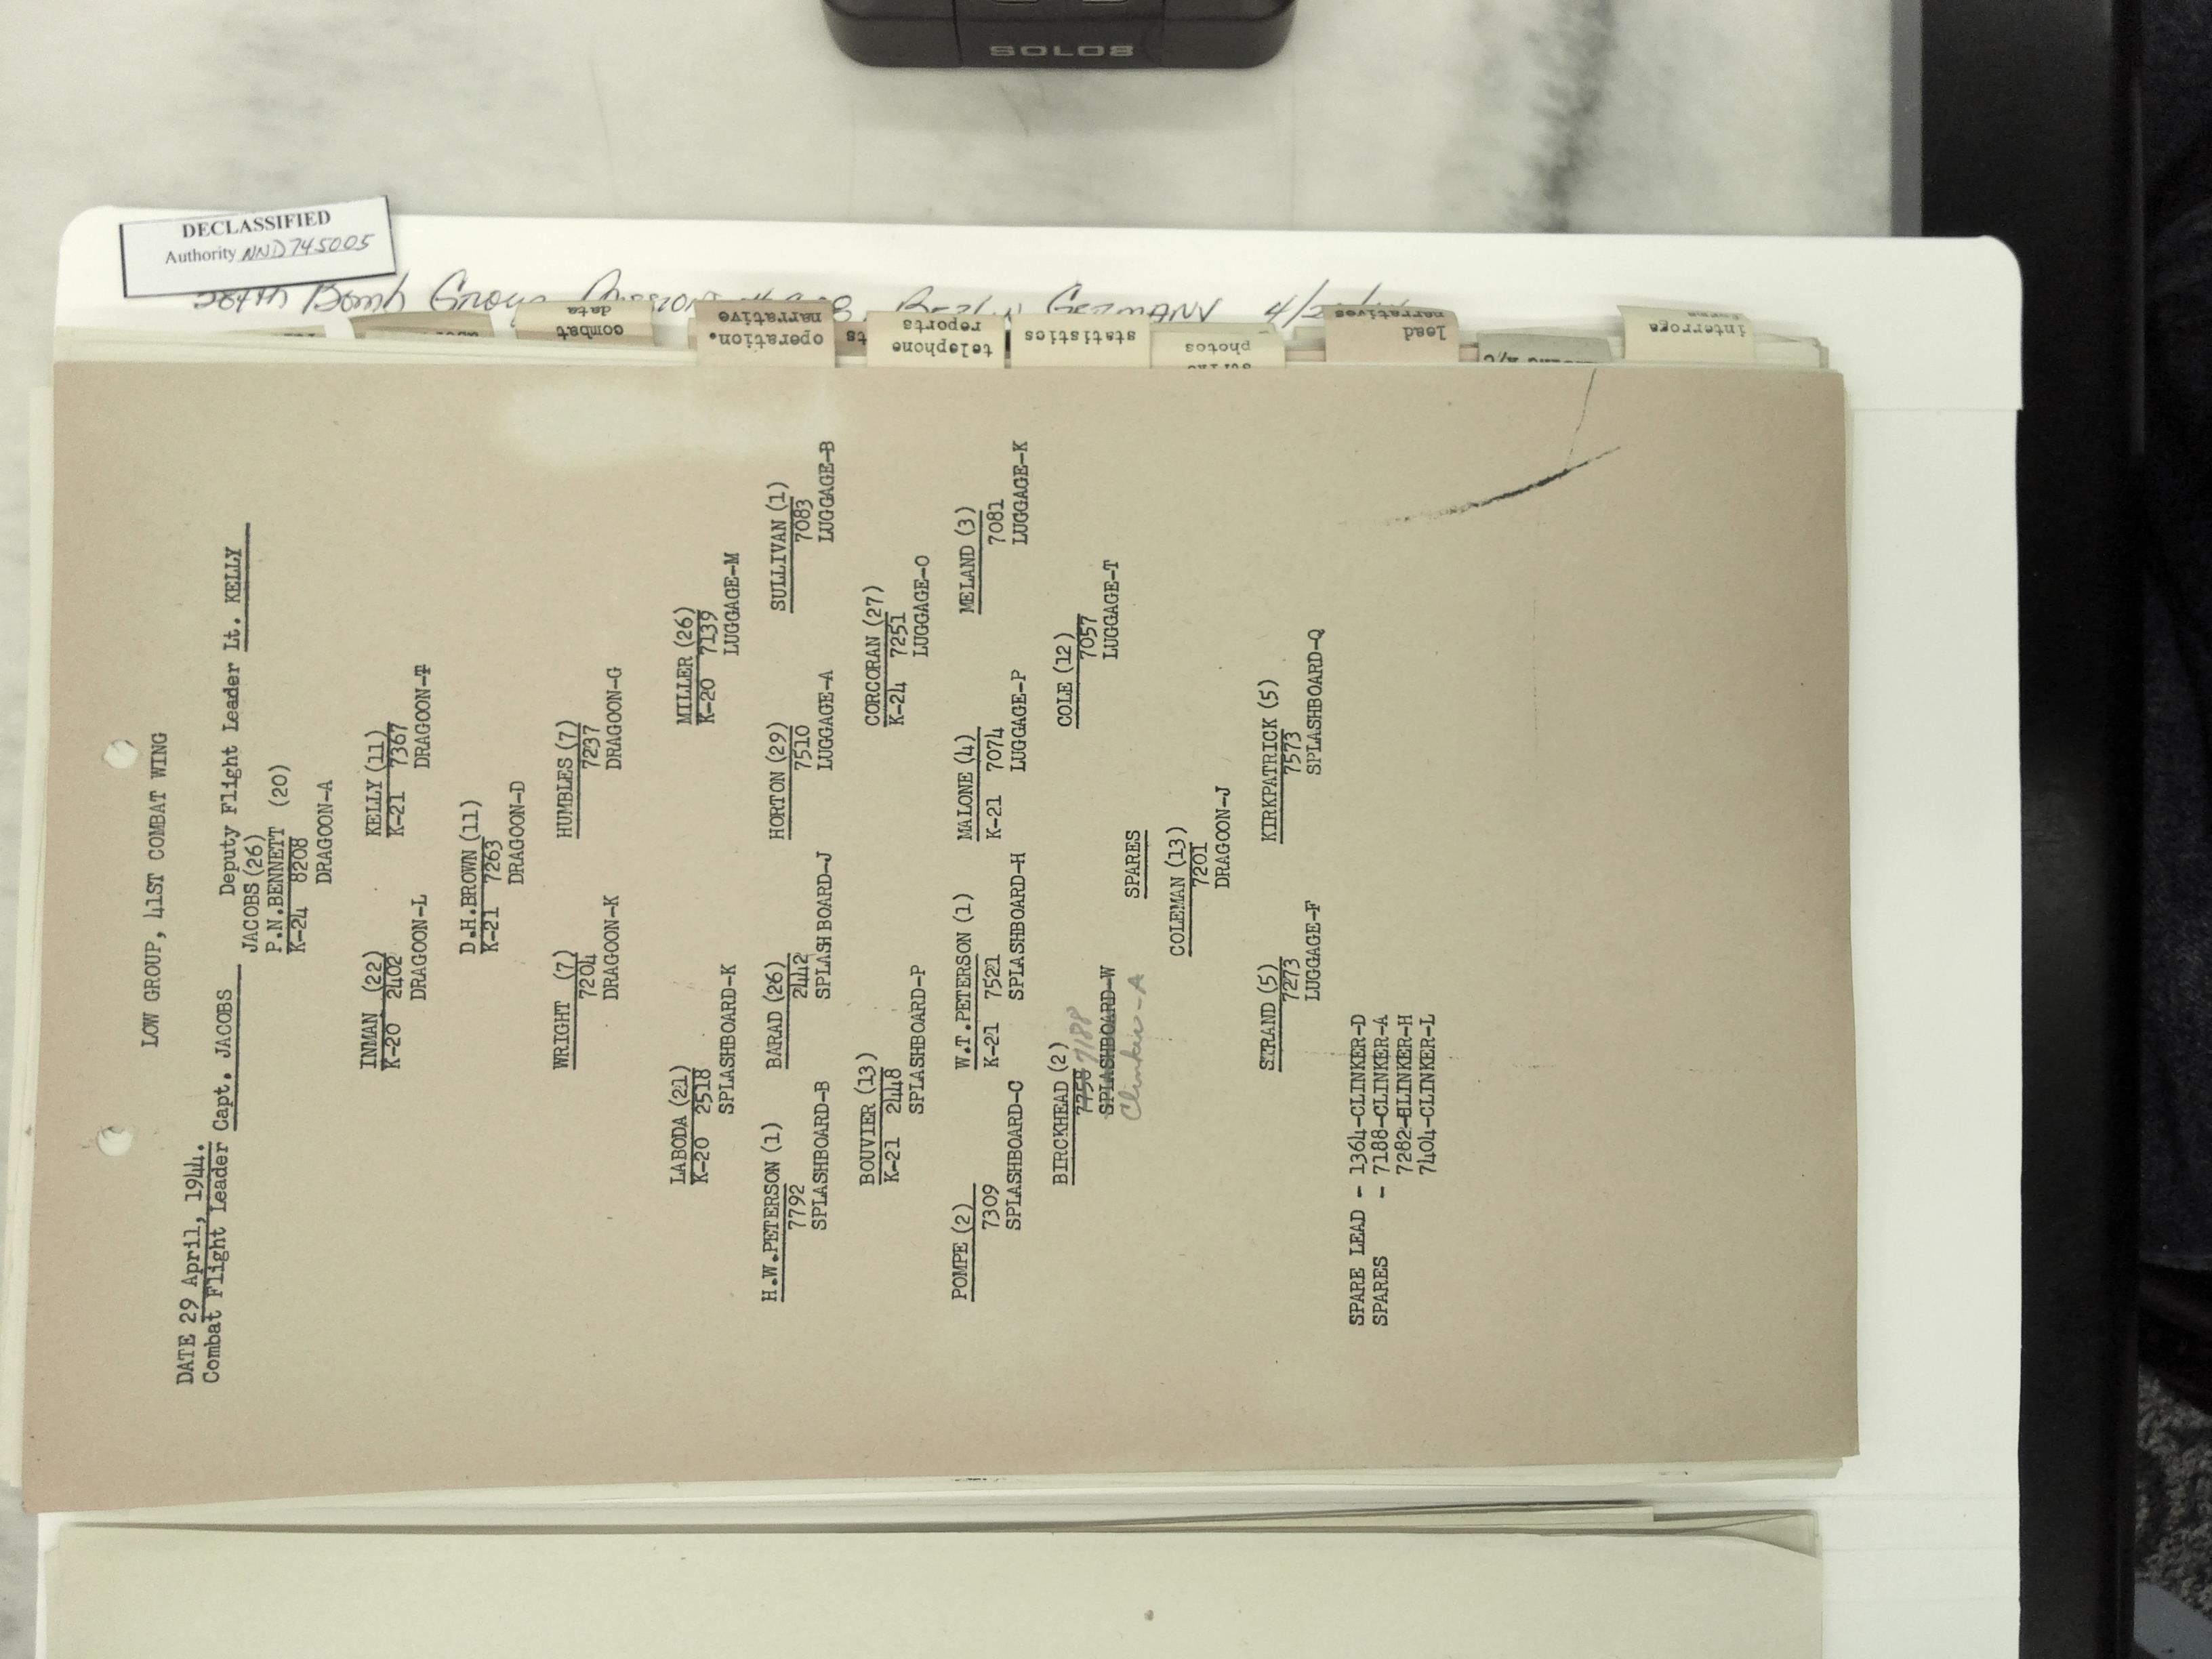 SOLO8
DECLASSIFIED
Authority NND 745005
384th Bomb Group Mission Berlin Germany
combat
data
operation.
narrative
telephone
reports
statistics
photos
lead
narratives
interroga
forms
LOW GROUP, 41ST COMBAT WING
DATE 29 April, 1944.
Combat Flight Leader Capt. JACOBS Deputy Flight Leader Lt. KELLY
JACOBS (26)
P.N.BENNETT (20)
K-24 8208
DRAGOON-A
INMAN (22) KELLY (11)
K-20 2402 K-21 7367
DRAGOON-L DRAGOON-T
D.H.BROWN (11)
K-21 7263
DRAGOON-D
WRIGHT (7) HUMBLES (7)
7204 7237
DRAGOON-K DRAGOON-G
LABODA (21) MILLER (26)
K-20 2518 K-20 7139
SPLASHBOARD-K LUGGAGE-M
H.W.PETERSON (1) BARAD (26) HORTON (29) SULLIVAN (1)
7792 2442 7510 7083
SPLASHBOARD-B SPLASH BOARD-J LUGGAGE-A LUGGAGE-B
BOUVIER (13) CORCORAN (27)
K-21 2448 K-24 7251
SPLASHBOARD-P LUGGAGE-O
POMPE (2) W.T.PETERSON (1) MALONE (4) MELAND (3)
7309 K-21 7521 K-21 7074 7081
SPLASHBOARD-C SPLASHBOARD-H LUGGAGE-P LUGGAGE-K
BIRCKHEAD (2) COLE (12)
7758 7188 7057
SPLASHBOARD-W LUGGAGE-T
Clinker-A
SPARES
COLEMAN (13)
7201
DRAGOON-J
STRAND (5) KIRKPATRICK (5)
7273 7573
LUGGAGE-F SPLASHBOARD-Q
SPARE LEAD - 1364-CLINKER-D
SPARES - 7188-CLINKER-A
7282-CLINKER-H
7404-CLINKER-L